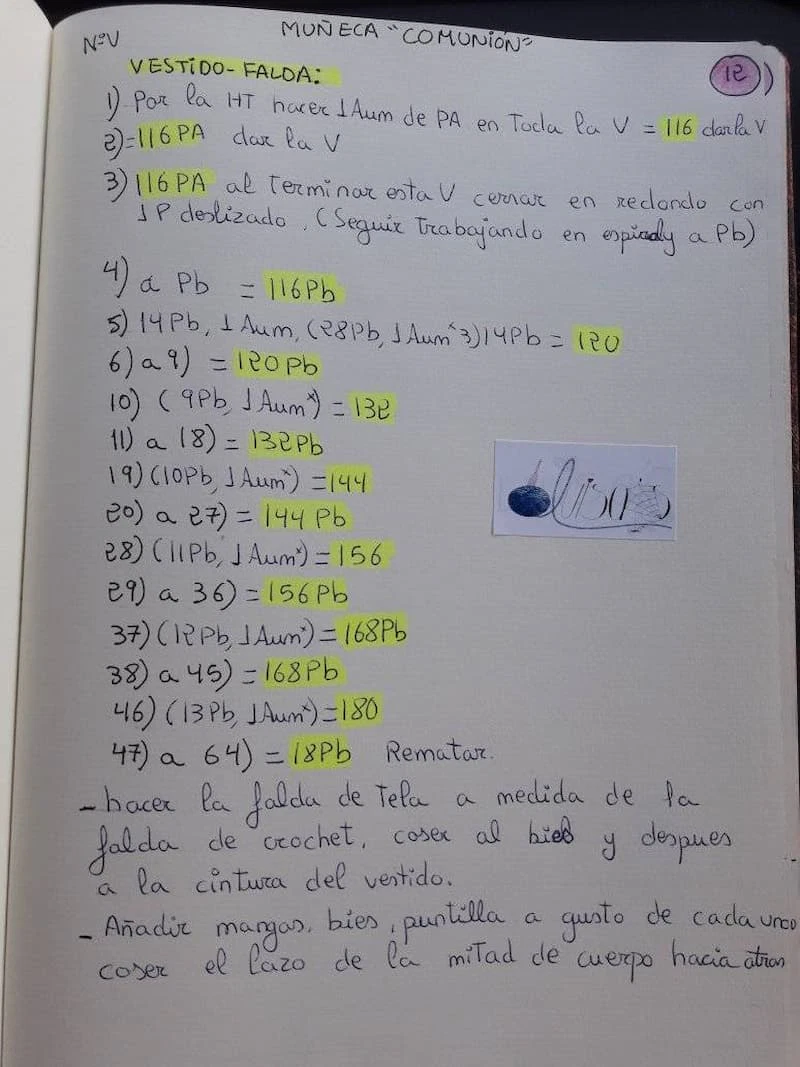 NºV
MUÑECA "COMUNIÓN"
12)
VESTIDO-FALDA:
1) Por la HT hacer 1 Aum de PA en Toda la V = 116 dar la V
2) = 116 PA dar la V
3) 116 PA al Terminar esta V cerrar en redondo con
1 P deslizado. (Seguir Trabajando en espiral y a Pb)
4) a Pb = 116 Pb
5) 14 Pb, 1 Aum, (28 Pb, 1 Aum × 3) 14 Pb = 120
6) a 9) = 120 Pb
10) (9 Pb, 1 Aum*) = 132
11) a 18) = 132 Pb
19) (10 Pb, 1 Aum*) = 144
20) a 27) = 144 Pb
28) (11 Pb, 1 Aum*) = 156
29) a 36) = 156 Pb
37) (12 Pb, 1 Aum*) = 168 Pb
38) a 45) = 168 Pb
46) (13 Pb, 1 Aum*) = 180
47) a 64) = 18 Pb Rematar.
- hacer la falda de Tela a medida de la
falda de crochet, coser al bies y despues
a la cintura del vestido.
- Añadir mangas, bies, puntilla a gusto de cada uno
coser el lazo de la mitad de cuerpo hacia atras